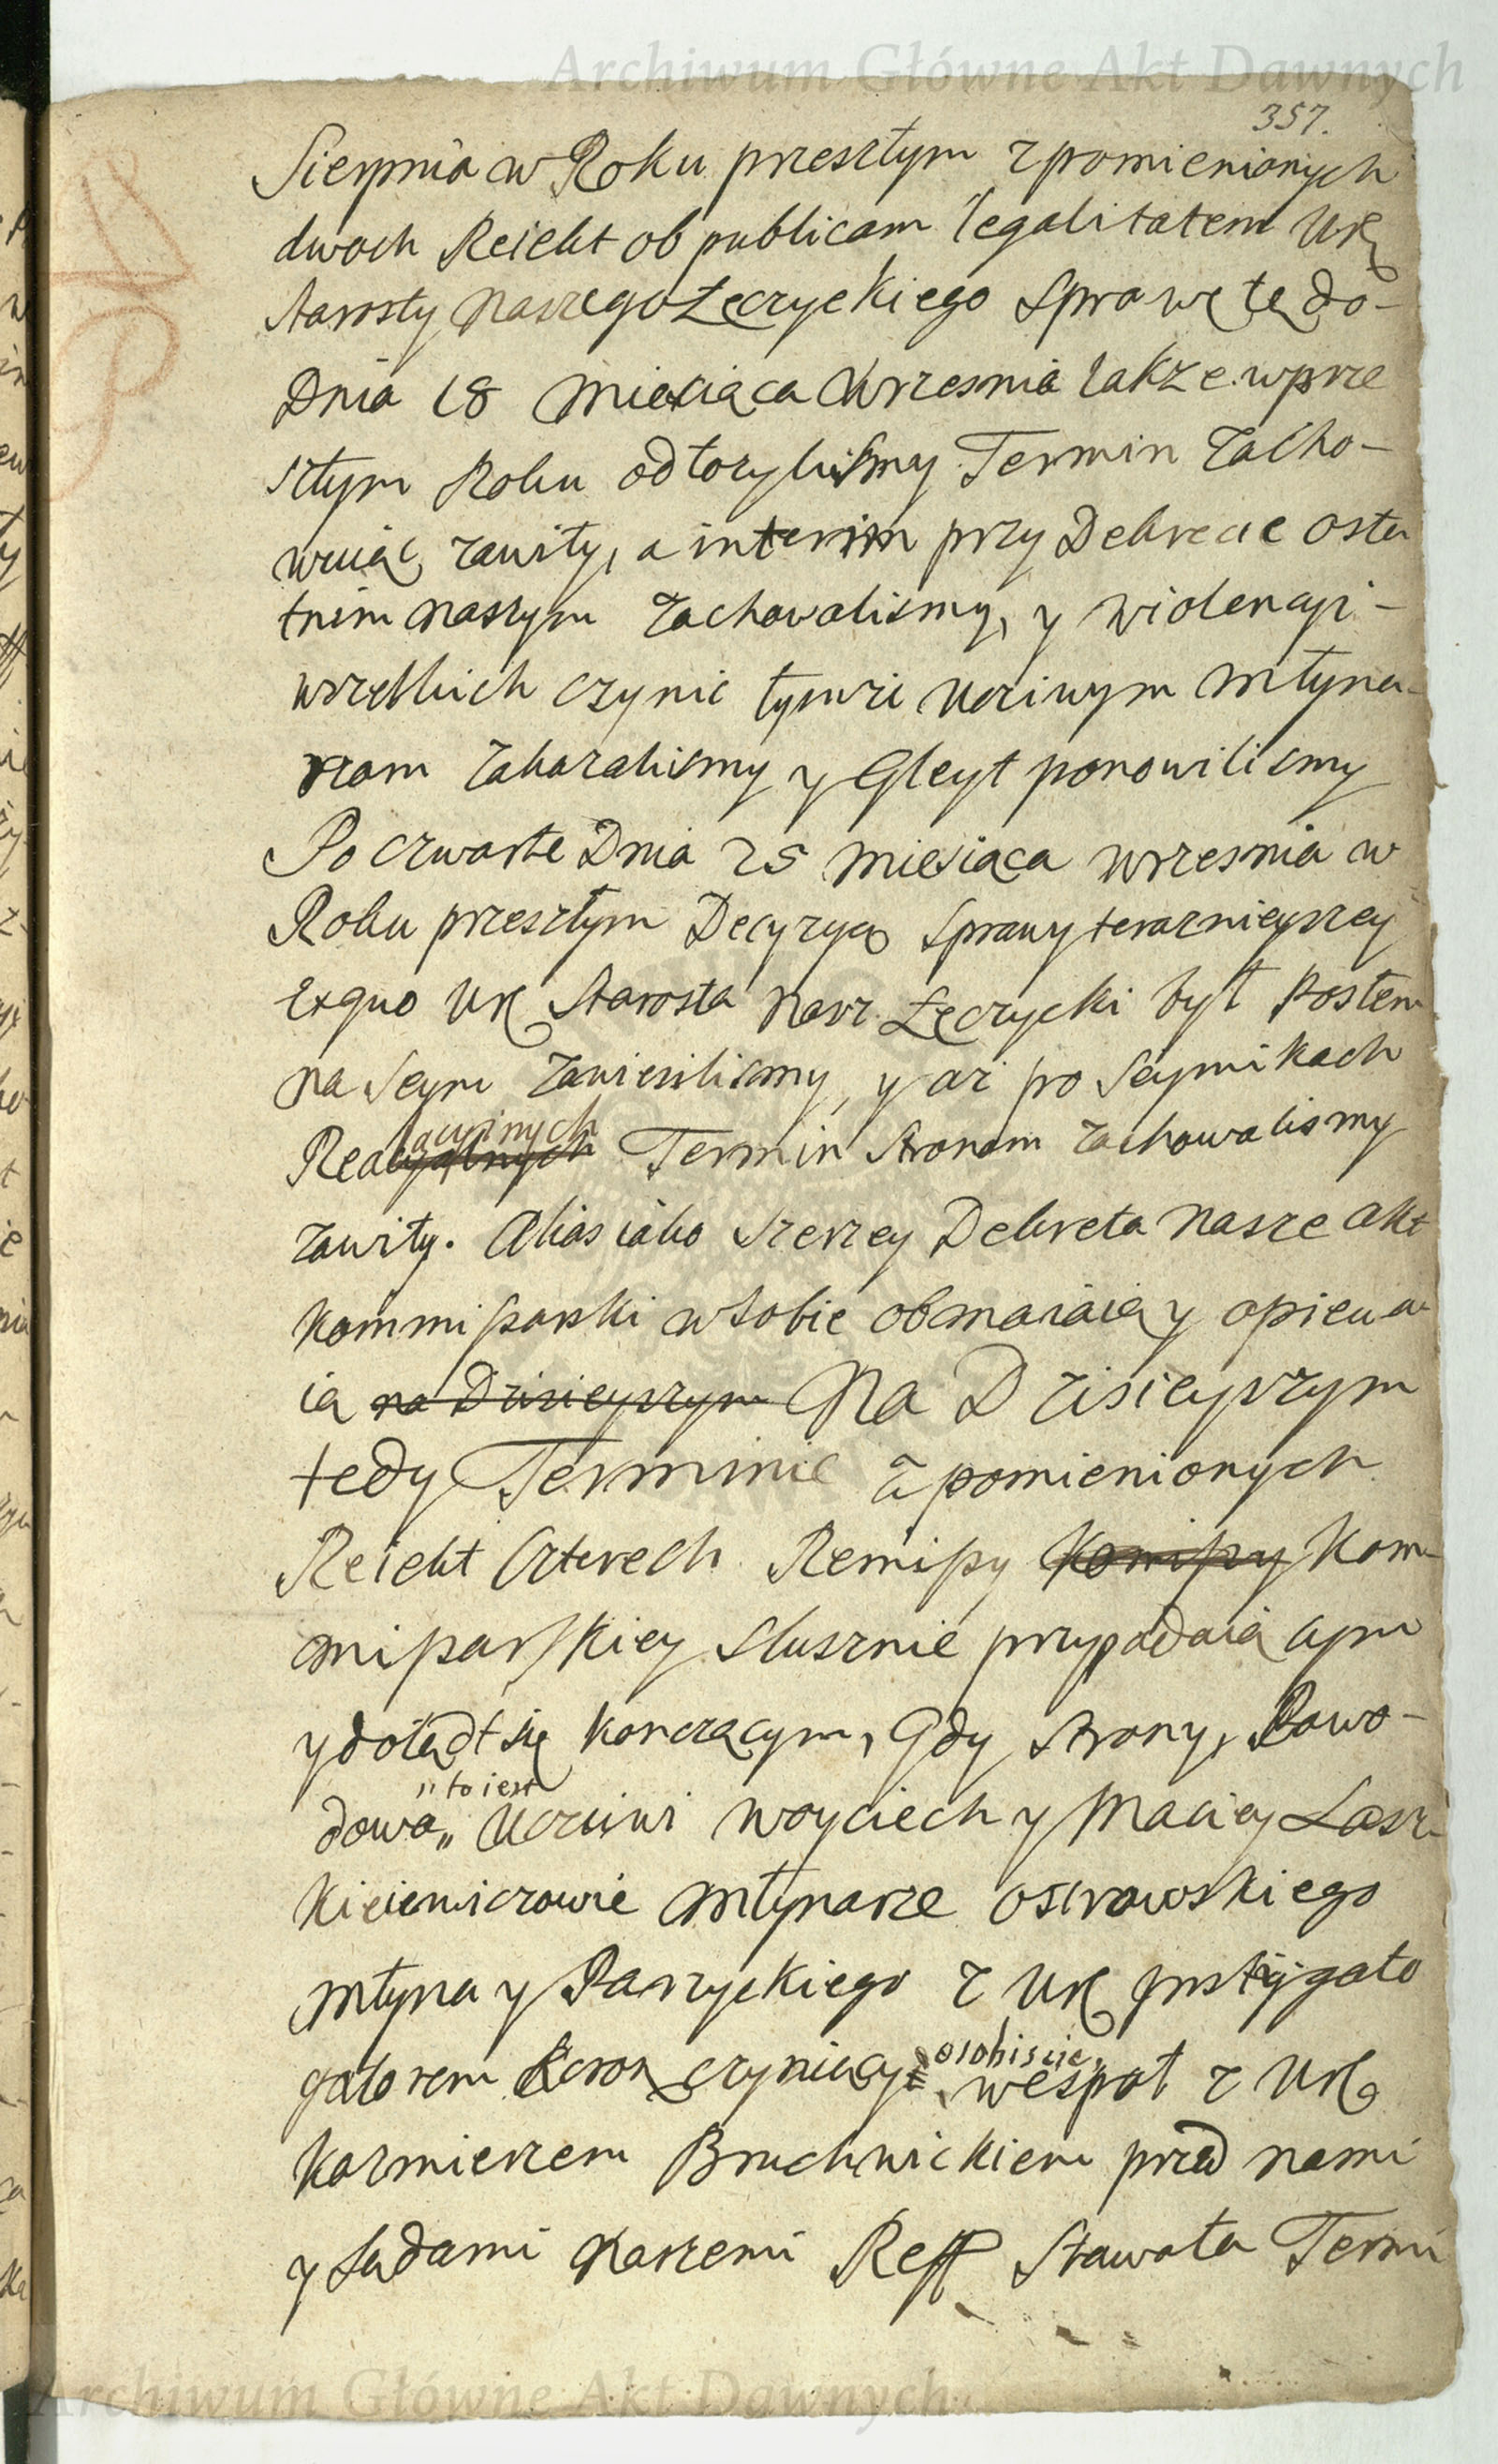 Archiwum Główne Akt Dawnych
357.
Sierpnia w Roku przeszłym z pomienionych
dwoch Reickt ob publicam legalitatem Ur
Starosty naszego Łęczyckiego Sprawę tę do-
Dnia 18 Miesiąca Wrzesnia takze w prze
szłym Roku odłozylismy Termin Zacho-
wuiąc zawity, a interim przy Dekrecie osta
tnim naszym zachowalismy, y wiolencyi-
wszelkich czynic tymze Ucziwym Młyna-
rzom zakazalismy y Gleyt ponowilismy
Po czwarte Dnia 25 Miesiąca Wrzesnia w
Roku przeszłym Decyzyą Sprawy terazniejszey
Exquo Ur Starosta nasz Łęczycki był Posłem
na Seym zawiesilismy, y az po Seymikach
Relacyinych Termin Stronom zachowalismy
zawity. Alias iako szerzey Dekreta nasze akt
Kommissarski w sobie obmawiaią y opiewa
ią na Dzisieyszym Na Dzisieyszym
tedy Terminie z pomienionych
Reickt Czterech Remissy Komissy Kom-
missarskiey Słusznie przypadaiącym
y dotąd się konczącym, Gdy Strony, Powo-
dowa „ to iest „ Ucziwi Woyciech y Maciey Lasz
kiewiczowie Młynarze Ostrowskiego
Młyna y Parzyckiego z Ur Instygato
gatorem Koron czyniący osobiscie, wespoł z Ur
Kazmierzem Bruchwickiem przed nami
y Sądami naszemi Reff Stawała Termi
Archiwum Główne Akt Dawnych